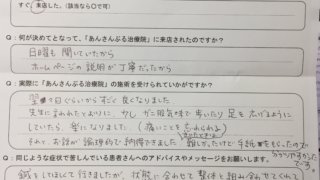 すぐ、来店した。（該当なら○で可）
Q：何が決めてとなって、「あんさんぶる治療院」に来店されたのですか？
日曜も開いていたから
ホームページの説明が丁寧だったから
Q：実際に「あんさんぶる治療院」の施術を受けられていかがですか？
翌々日ぐらいからすごく良くなりました
先生に言われたとおりに、少しガニ股気味で歩いたり足を広げるように
していたら、楽になりました（痛いことを忘れられる）
それで、お話が論理的で納得できました
Q：同じような症状で苦しんでいる患者さんへのアドバイスやメッセージをお願いします。
鍼をしてまして行きましたが、状態に合わせて整体を組み合わせてくれて